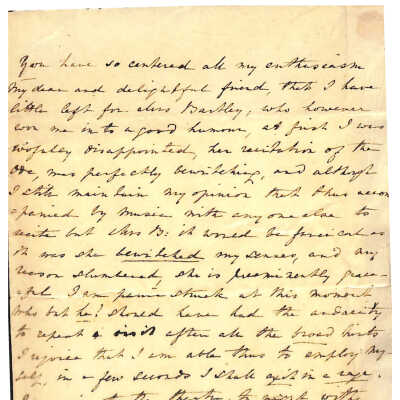 You have so centered all my enthusiasm
My dear and delightful friend, that I have
little left for Mrs Bartley, who however
won me into a good humour, at first I was
wofully disappointed, her recitation of the
Ode, was perfectly bewitching, and altho'
I still maintain my opinion that thus accom
=panied by music with any one else to
recite but Mrs B: it would be farcical as
it was she bewitched my senses, and my
reason slumbered, she is preeminently grace=
=ful. I am panic struck at this moment
Who but he! should have had the audacity
to repeat a visit after all the broad hints
I rejoice that I am able thus to employ my=
self, in a few seconds I shall exit in a rage.
the theatre, to